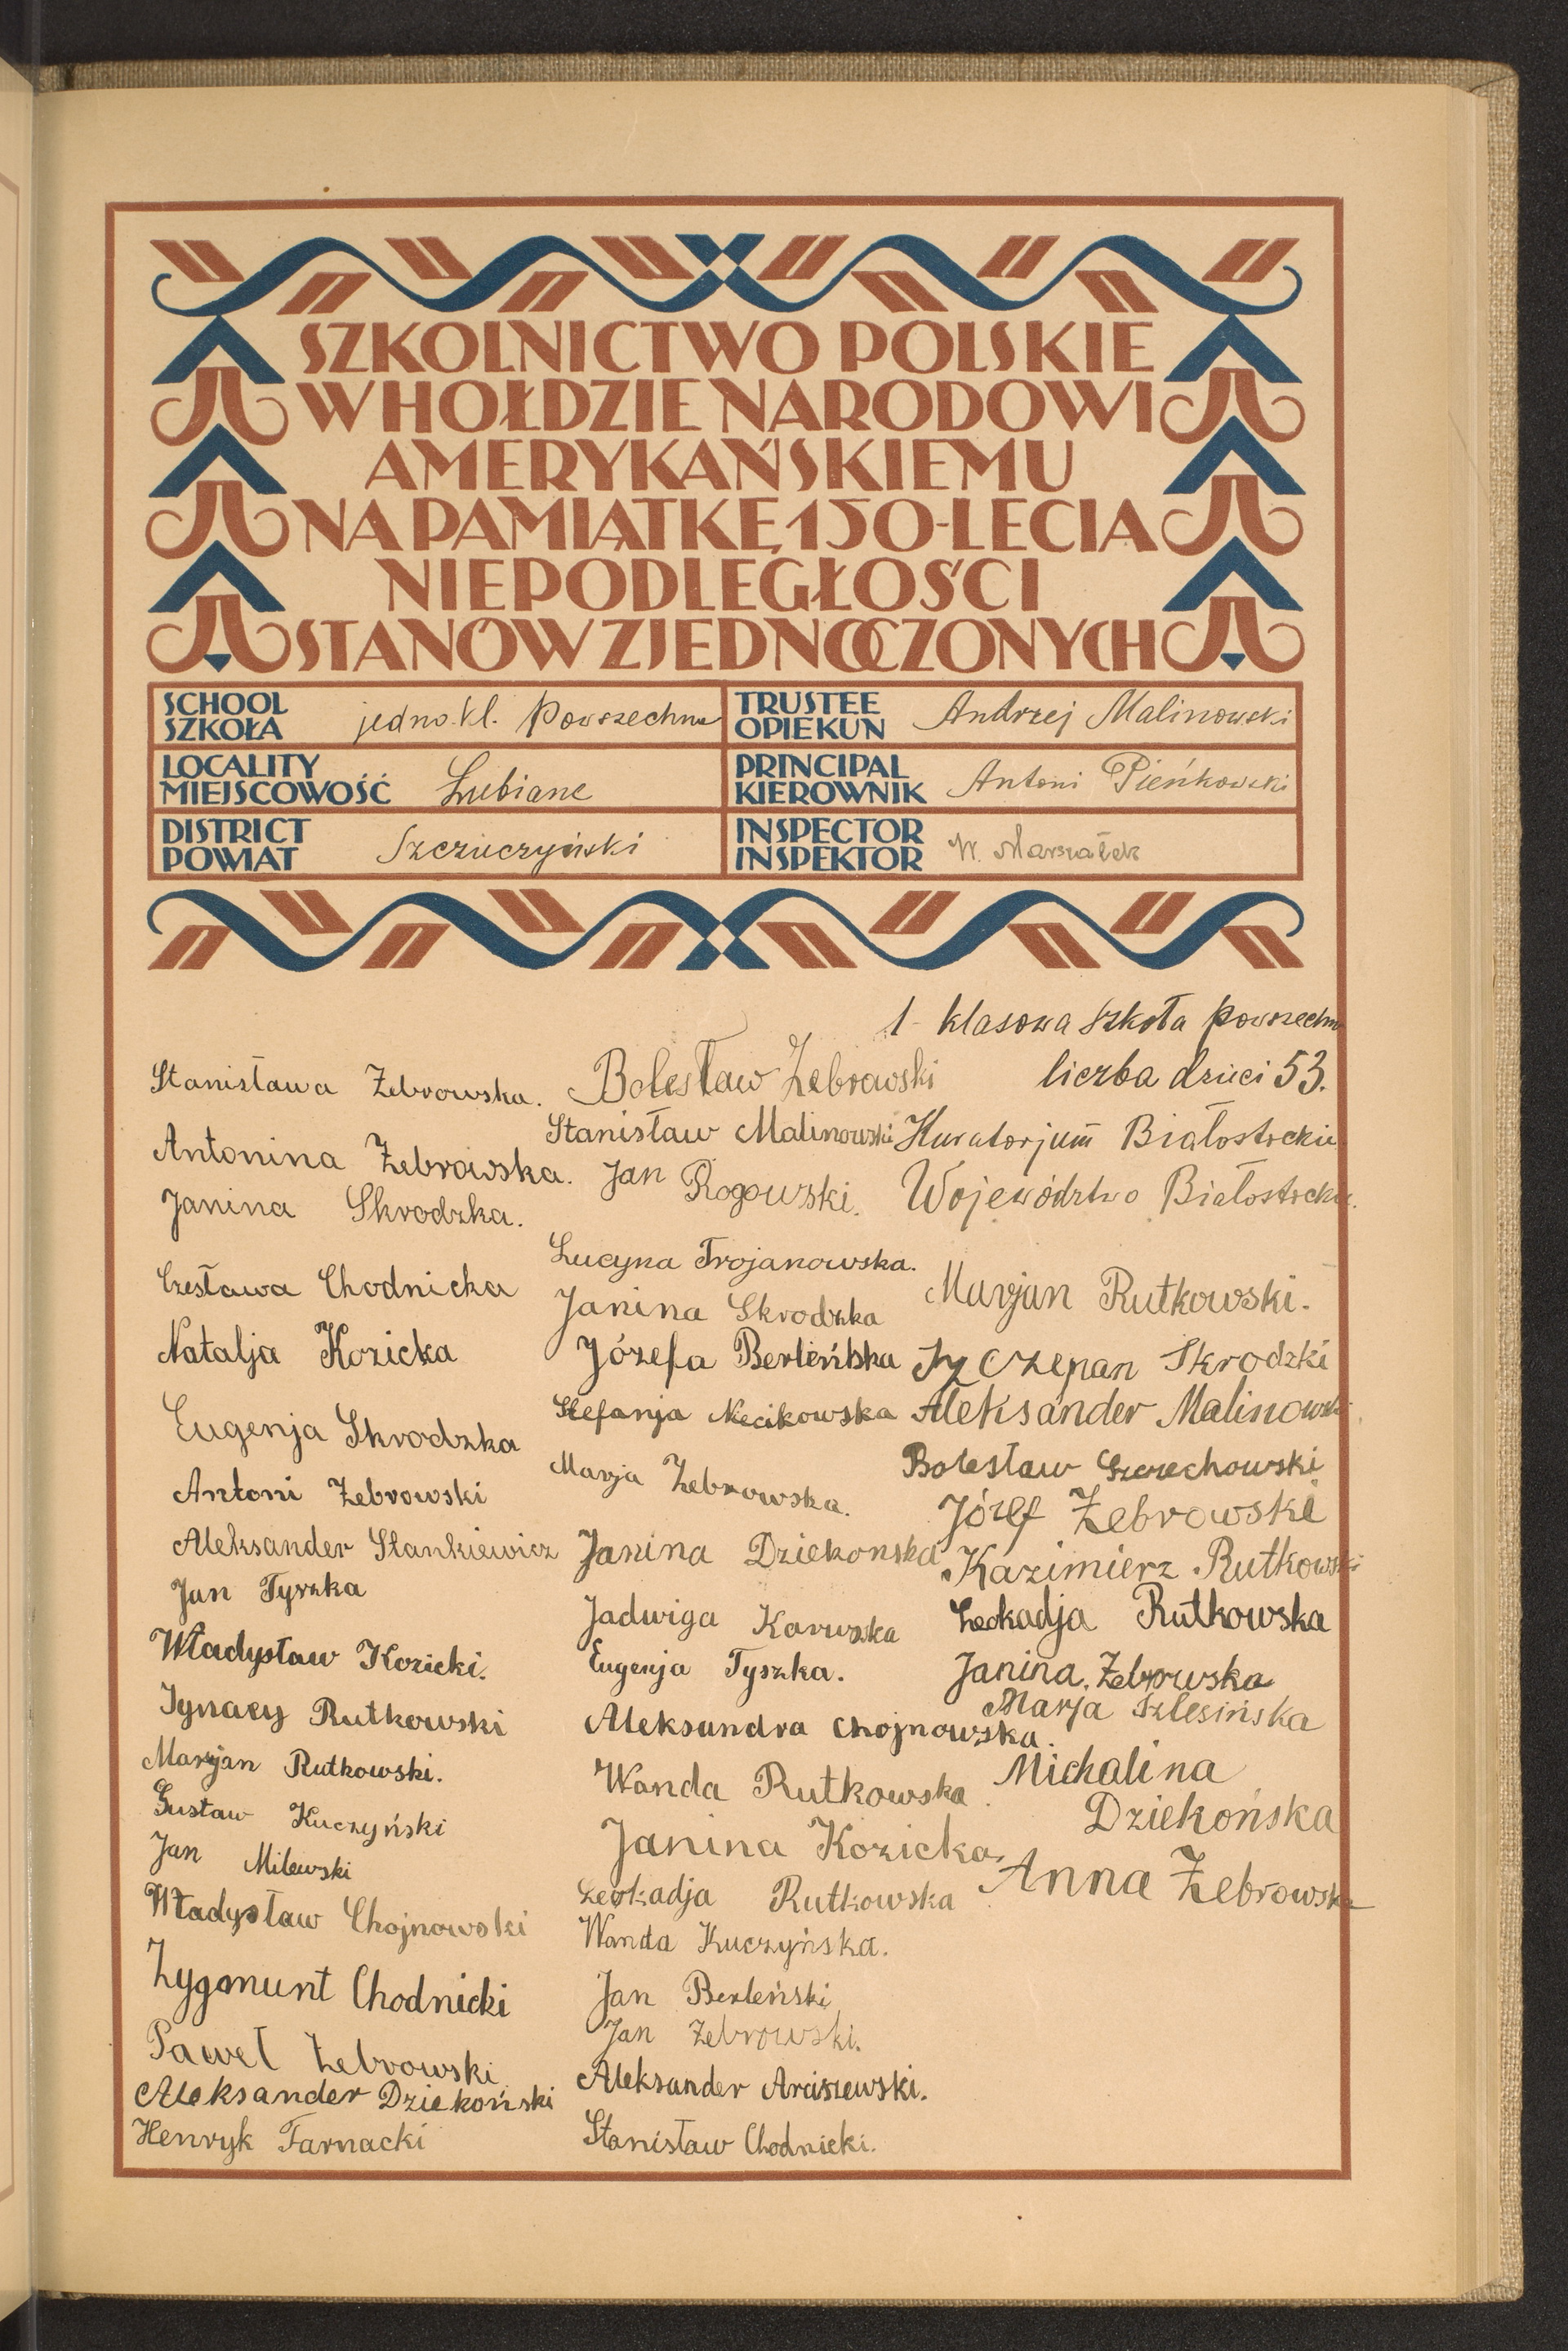 SZKOLNICTWO POLSKIE
W HOŁDZIE NARODOWI
AMERYKAŃSKIEMU
NA PAMIĄTKĘ 150-LECIA
NIEPODLEGŁOŚCI
STANÓW ZJEDNOCZONYCH
SCHOOL
SZKOŁA
jedno-kl. Powszechna
TRUSTEE
OPIEKUN
Andrzej Malinowski
LOCALITY
MIEJSCOWOŚĆ
Lubiane
PRINCIPAL
KIEROWNIK
Antoni Pieńkowski
DISTRICT
POWIAT
Szczuczyński
INSPECTOR
INSPEKTOR
W. Marszałek
Stanisława Żebrowska.
Antonina Żebrowska.
Janina Skrodzka.
Czesława Chodnicka
Natalja Kozicka
Eugenja Skrodzka
Antoni Żebrowski
Aleksander Stankiewicz
Jan Tyszka
Władysław Kozicki.
Ignacy Rutkowski
Marjan Rutkowski.
Gustaw Kuczyński
Jan Milewski
Władysław Chojnowski
Zygmunt Chodnicki
Paweł Żebrowski
Aleksander Dziekoński
Henryk Tarnacki
Bolesław Żebrowski
Stanisław Malinowski
Jan Rogowski.
Lucyna Trojanowska.
Janina Skrodzka
Józefa Berleńska
Stefanja
Marja Żebrowska.
Janina Dziekonska
Jadwiga
Eugenja Tyszka.
Aleksandra Chojnowska.
Wanda Rutkowska
Janina Kozicka
Leokadja Rutkowska
Wanda Kuczyńska.
Jan Berleński
Jan Żebrowski.
Aleksander Arciszewski.
Stanisław Chodnicki.
1 klasowa Szkoła Powszechn
liczba dzieci 53.
Kuratorjum Białostockie
Województwo Białostockie.
Marjan Rutkowski.
Szczepan Skrodzki
Aleksander Malinowski
Bolesław
Józef Żebrowski
Kazimierz Rutkowski
Leokadja Rutkowska
Janina Żebrowska
Marja Szlesińska
Michalina
Dziekońska
Anna Żebrowska